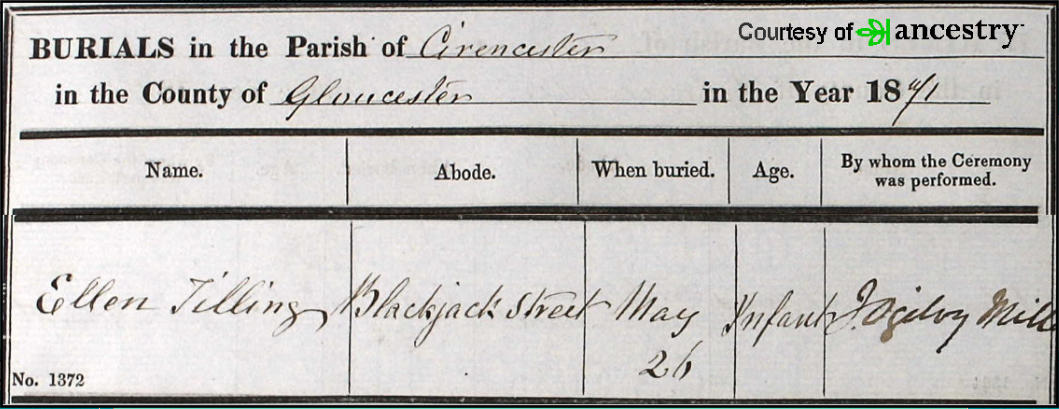 Courtesy of ancestry
BURIALS in the Parish of Cirencester
in the County of Gloucester in the Year 1841
Name. Abode. When buried. Age. By whom the Ceremony
was performed.
Ellen Tilling Blackjack Street May Infant J. Ogilvy Mill
26
No. 1372